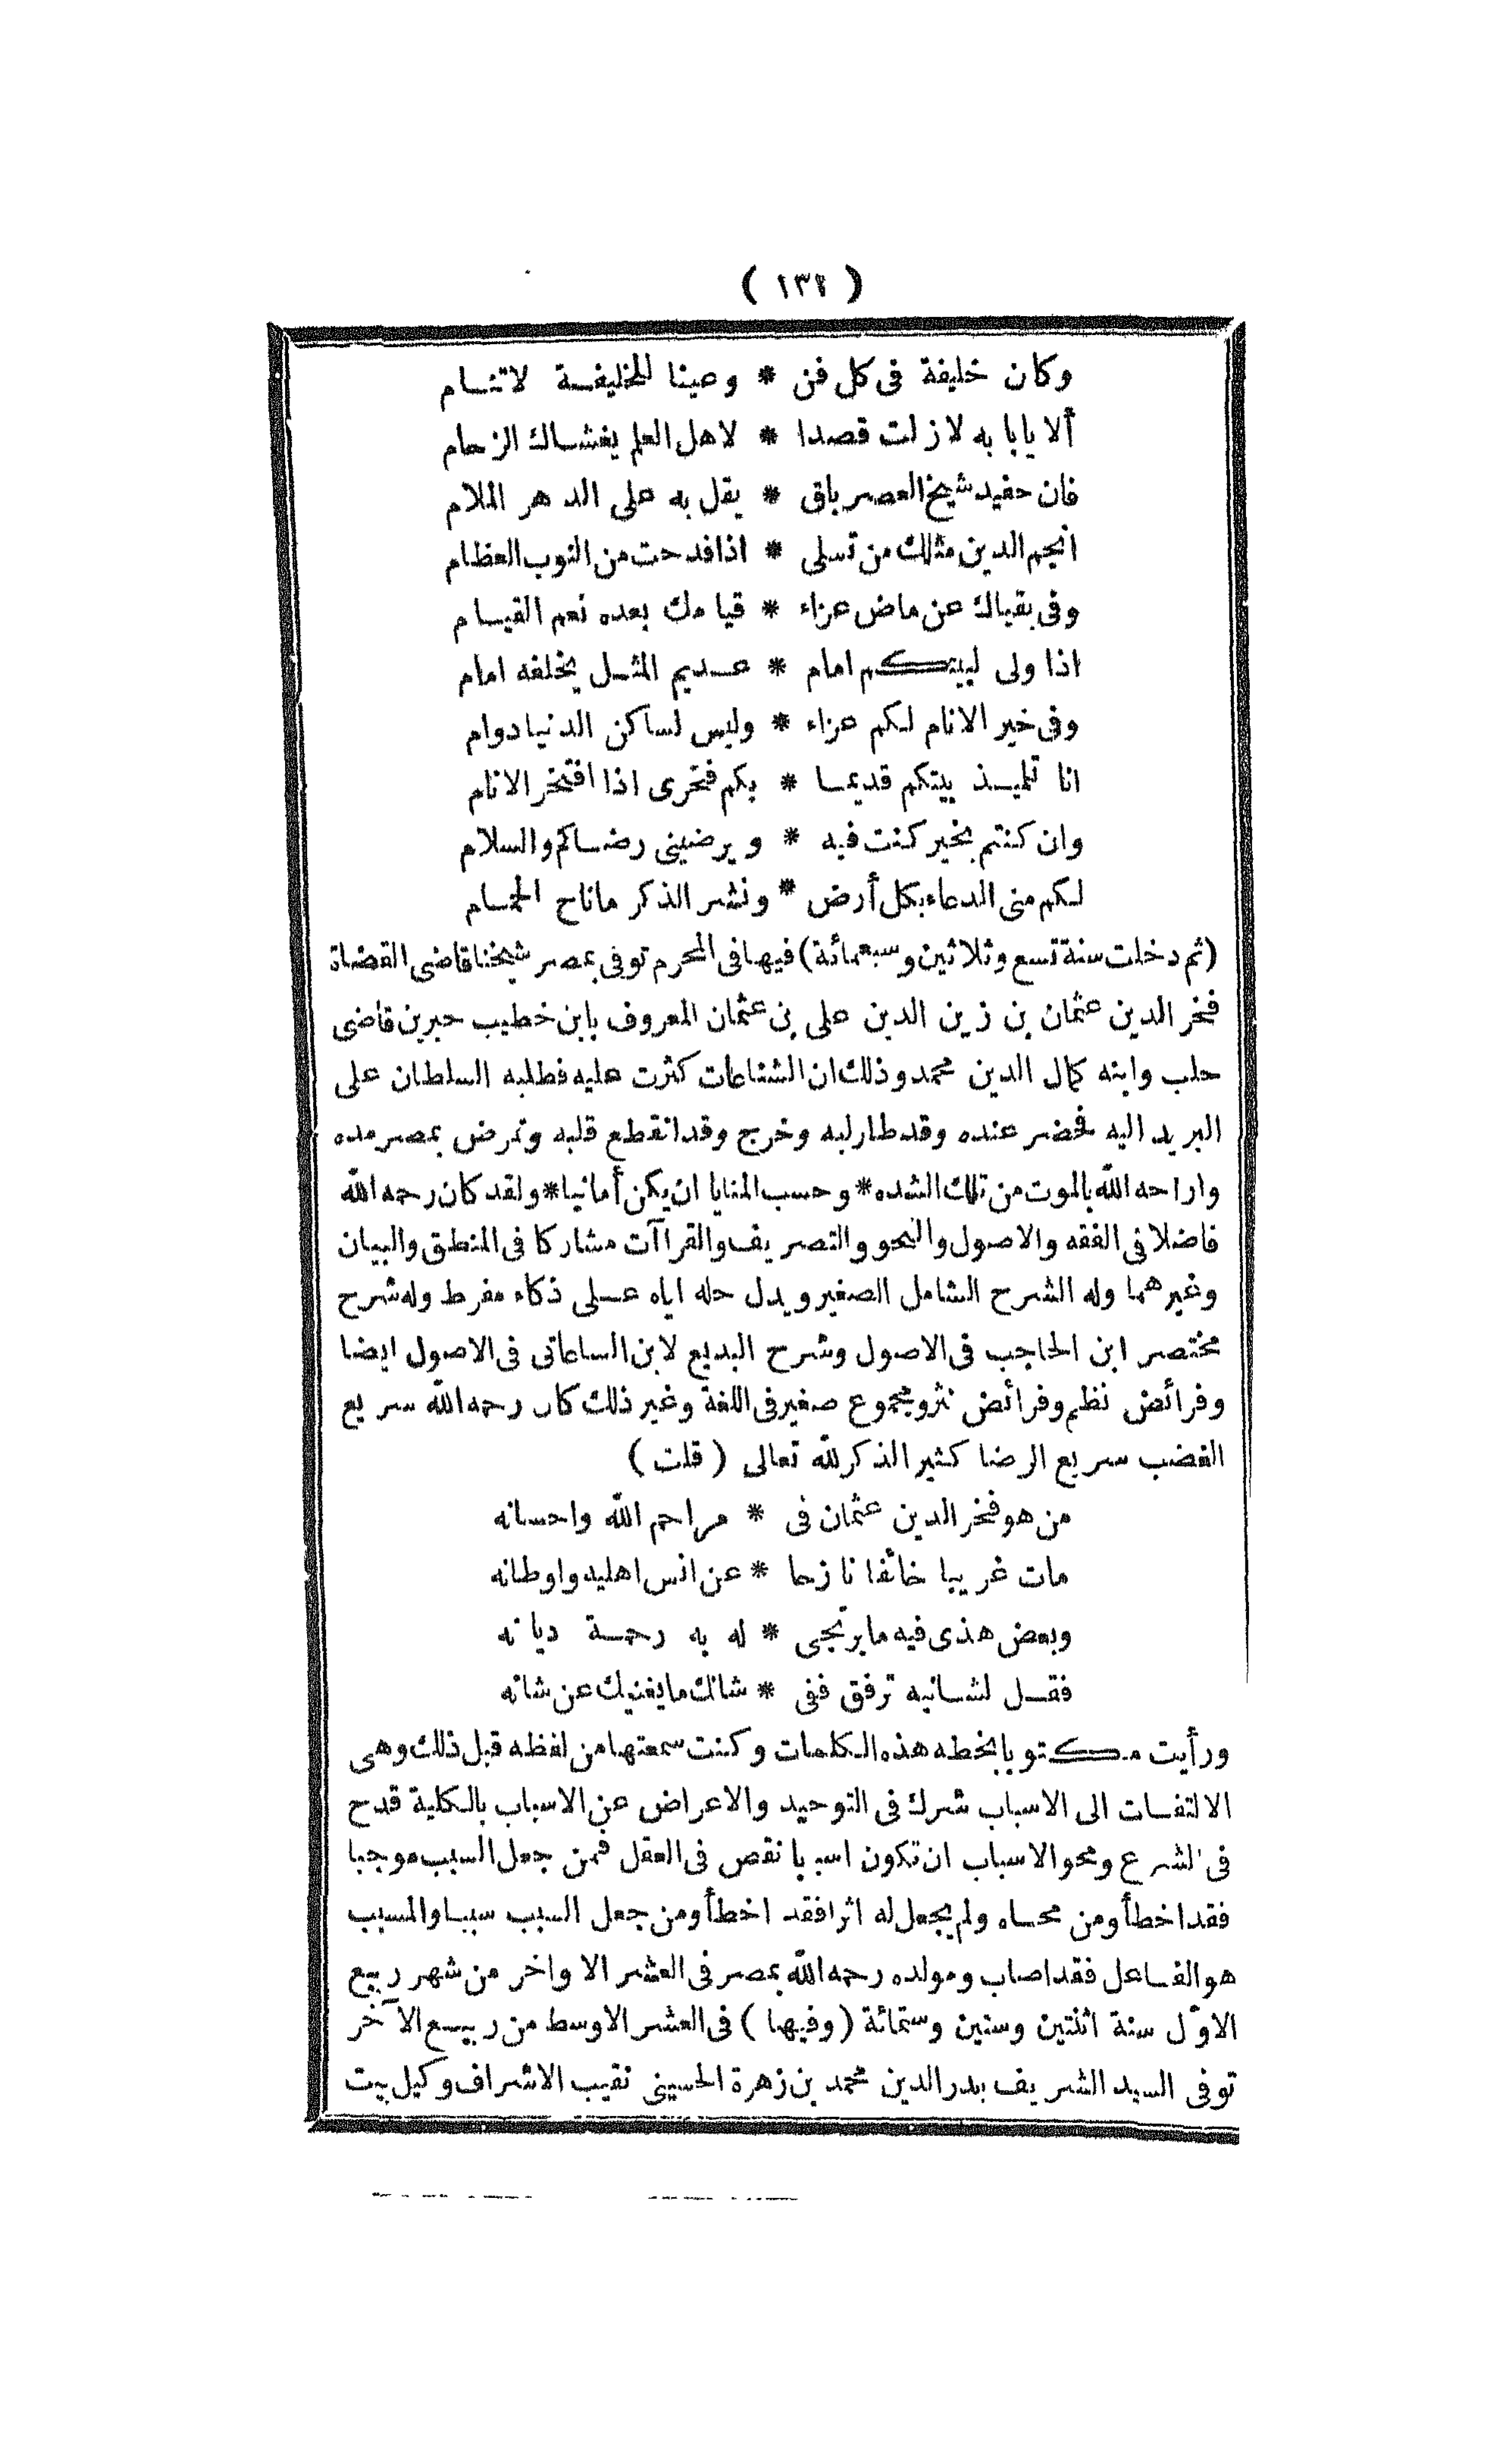 ( ١٣٢ )
وكان خليفة فى كل فن * وعينا للخليفة لاتنام
ألا يابابه لازلت قصدا * لاهل العلم يغشاك الزحام
فان حفيد شيخ العصر باق * يقل به على الدهر الملام
انجم الدين مثلك من تسلى * اذا فدحت من النوب العظام
وفى بقياك عن ماض عزاء * قيامك بعده نعم القيام
اذا ولى لبيتكم امام * عديم المثل يخلفه امام
وفى خير الانام لكم عزاء * وليس لساكن الدنيا دوام
انا تلميذ بيتكم قديما * بكم فخرى اذا افتخر الانام
وان كنتم بخير كنت فيه * ويرضينى رضاكم والسلام
لكم منى الدعاء بكل أرض * ونشر الذكر ماناح الحمام
(ثم دخلت سنة تسع وثلاثين وسبعمائة) فيها فى المحرم توفى بمصر شيخنا قاضى القضاة
فخر الدين عثمان بن زين الدين على بن عثمان المعروف بابن خطيب جبرين قاضى
حلب وابنه كمال الدين محمد وذلك ان الشناعات كثرت عليه فطلبه السلطان على
البريد اليه فحضر عنده وقد طار لبه وخرج وقد انقطع قلبه وتمرض بمصر مده
واراحه الله بالموت من تلك الشده * وحسب المنايا ان يكن أمانيا * ولقد كان رحمه الله
فاضلا فى الفقه والاصول والنحو والتصريف والقراآت مشاركا فى المنطق والبيان
وغيرهما وله الشرح الشامل الصغير ويدل حله اياه على ذكاء مفرط وله شرح
مختصر ابن الحاجب فى الاصول وشرح البديع لابن الساعاتى فى الاصول ايضا
وفرائض نظم وفرائض نثر ومجموع صغير فى اللغة وغير ذلك كان رحمه الله سريع
الغضب سريع الرضا كثير الذكر لله تعالى (قلت)
من هو فخر الدين عثمان فى * مراحم الله واحسانه
مات غريبا خائفا نازحا * عن انس اهليه واوطانه
وبعض هذى فيه ما يرتجى * له به رحمة ديانه
فقل لشانيه ترفق ففى * شانك ما يغنيك عن شانه
ورأيت مكتوبا بخطه هذه الكلمات وكنت سمعتها من لفظه قبل ذلك وهى
الالتفات الى الاسباب شرك فى التوحيد والاعراض عن الاسباب بالكلية قدح
فى الشرع ومحو الاسباب ان تكون اسبابا نقص فى العقل فمن جعل السبب موجبا
فقد اخطأ ومن محاه ولم يجعل له اثرا فقد اخطأ ومن جعل السبب سببا والمسبب
هو الفاعل فقد اصاب ومولده رحمه الله بمصر فى العشر الاواخر من شهر ربيع
الاوّل سنة اثنتين وستين وستمائة (وفيها) فى العشر الاوسط من ربيع الآخر
توفى السيد الشريف بدر الدين محمد بن زهرة الحسينى نقيب الاشراف وكيل بيت